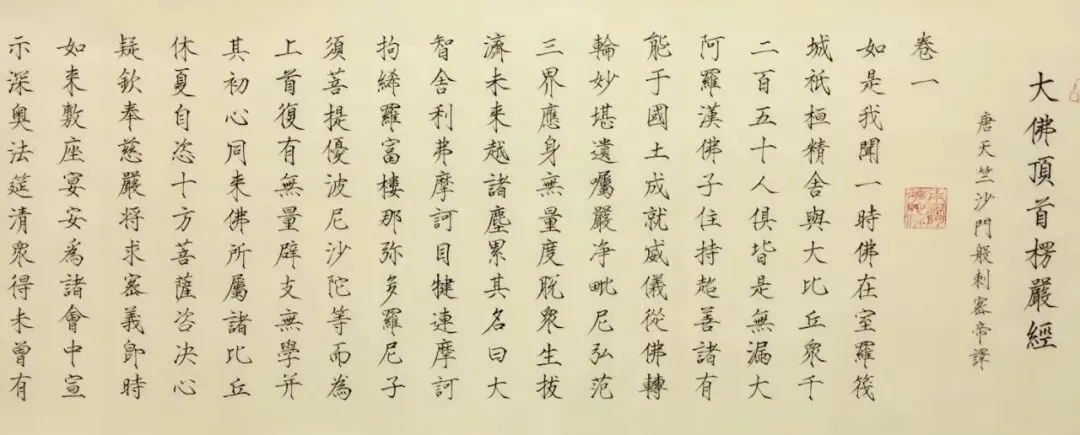 大佛頂首楞嚴經
唐天竺沙門般剌密帝譯
卷一
如是我聞一時佛在室羅筏
城祇桓精舍與大比丘眾千
二百五十人俱皆是無漏大
阿羅漢佛子住持超善諸有
能于國土成就威儀從佛轉
輪妙堪遺囑嚴净毗尼弘范
三界應身無量度脫眾生拔
濟未來越諸塵累其名曰大
智舍利弗摩訶目犍連摩訶
拘絺羅富樓那弥多羅尼子
須菩提優波尼沙陀等而為
上首復有無量辟支無學并
其初心同来佛所屬諸比丘
休夏自恣十方菩薩咨決心
疑欽奉慈嚴将求密義即時
如来敷座宴安為諸會中宣
示深奥法筵清眾得未曾有